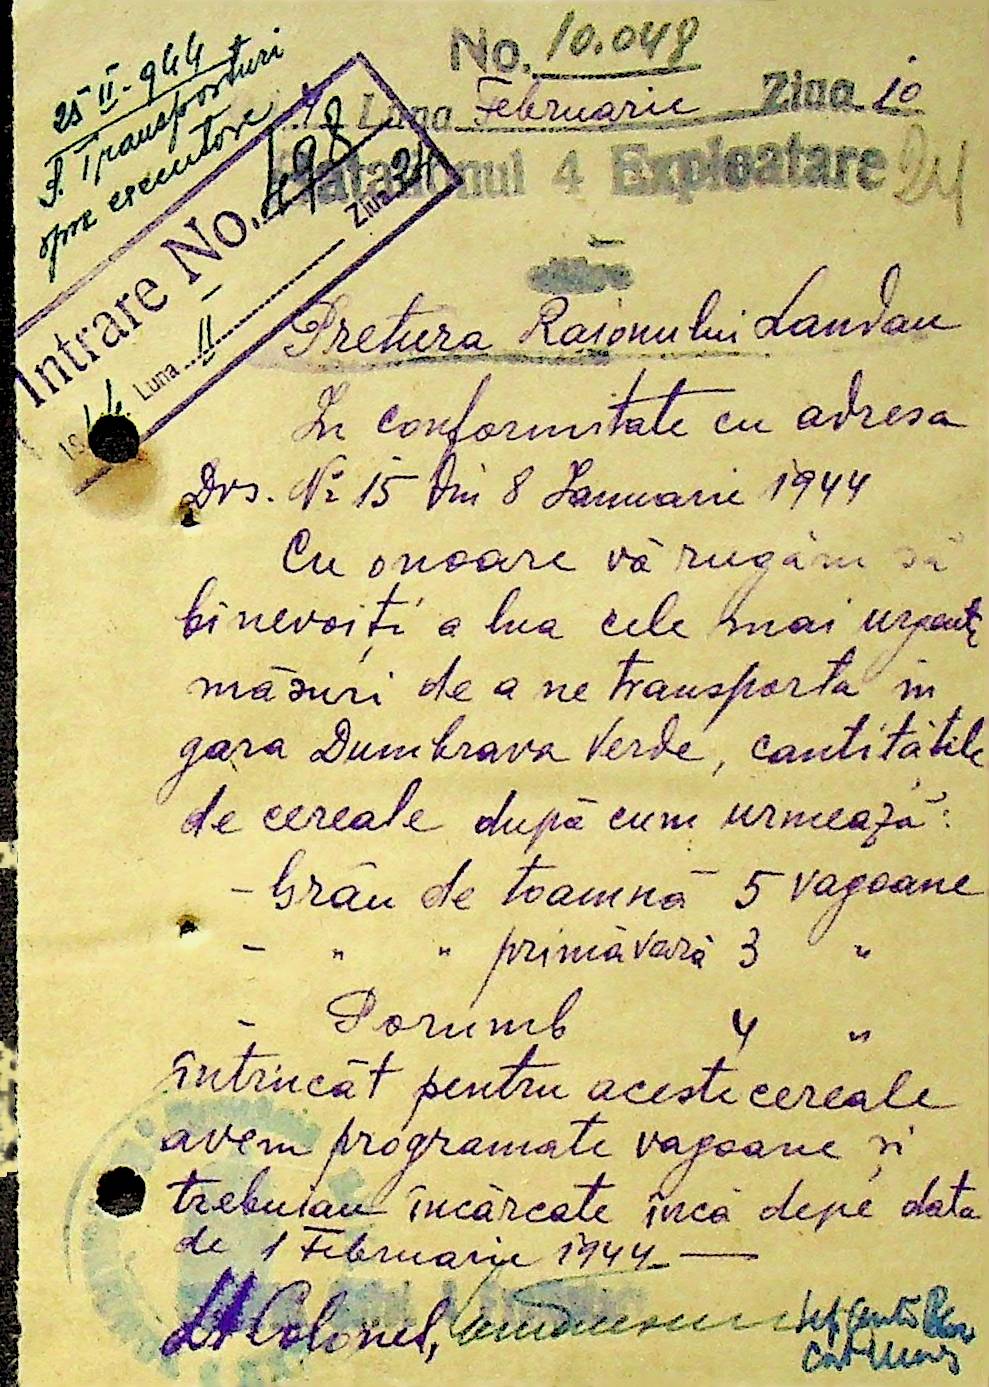 No. 10.048
Luna Februarie Ziua 10
Batalionul 4 Exploatare
24
25 II. 944
S. Transporturi
spre executare
Intrare No. 498
1944 Luna II Ziua 24
Pretura Raionului Landau
In conformitate cu adresa
Dvs. No 15 din 8 Ianuarie 1944
Cu onoare vă rugăm să
binevoiți a lua cele mai urgente
măsuri de a ne transporta in
gara Dumbrava Verde, cantitățile
de cereale după cum urmează:
- Grâu de toamnă 5 vagoane
- " " primăvară 3 "
- Porumb 4 "
întrucât pentru aceste cereale
avem programate vagoane și
trebuiau încărcate încă depe data
de 1 Februarie 1944 —
Lt Colonel,